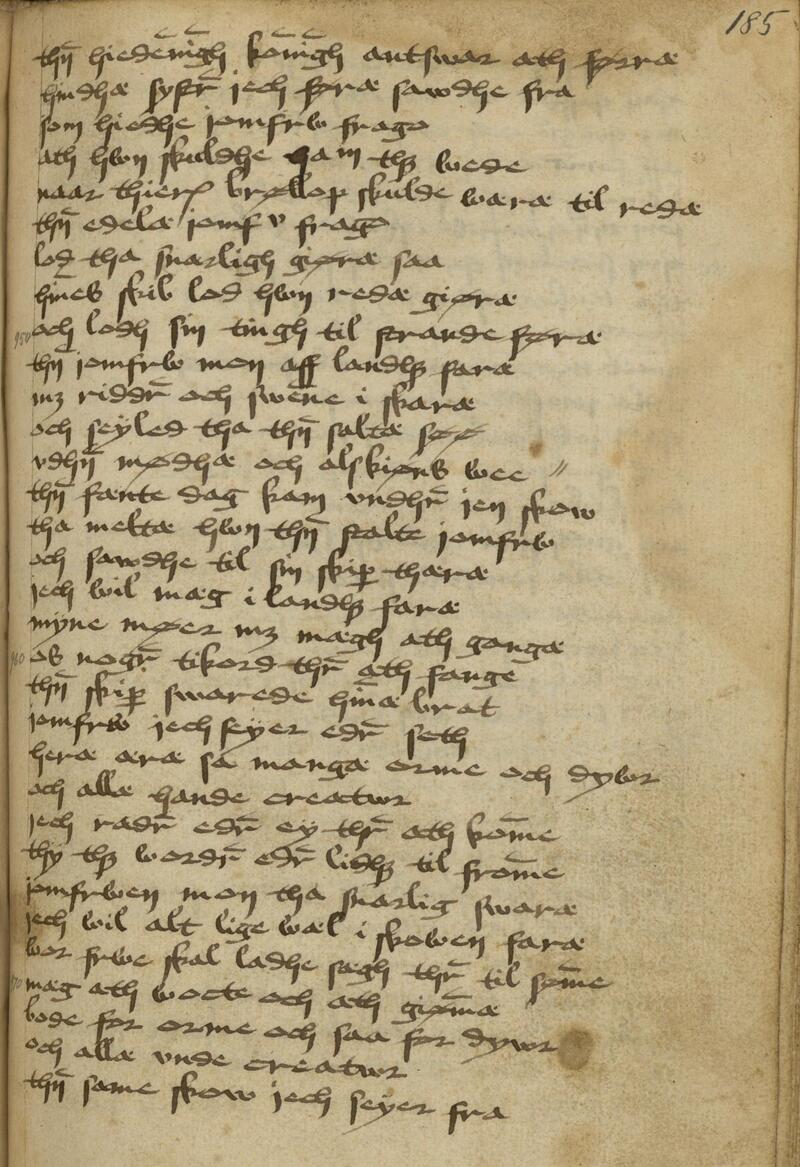 185
thn̄ hiedēnīgh kōnīgh antswar ath førræ
hindhæ systr̄ jech føræ sawdhe fra
som hiedhe jomfrw frago
ath hwn skuldhe gam thꝫ wede
naar thieræ brøllop skulde wæræ til redæ
thn̄ edelæ jomfv frago
lod tha snarligh giøræ saa
hn̄es skib lod hwn redæ giøræ
950 och lodh sin tingh til strande føræ
thn̄ jomfrw mon aff landhꝫ faræ
mꝫ riddr̄ och swēne i skaræ
och seyled tha thn̄ saltæ søø
vdhn̄ mødhæ och alskiøns wee //
thn̄ fæmte dag kam vndhr̄ jen skow
tha meltæ hwn thn̄ stalte jomfrw
och sawdhe til sin skiꝑ thæræ
jech wil mæg i landhꝫ faræ
myne møer mꝫ mægh ath gangæ
960 os nogr̄ tikord thr̄ ath fange
thn̄ skiꝑ swarede hn̄æ brat
jomfrw jech seyer edr̄ seth
heræ æræ sa mangæ orme och dywr
och allæ hande creatwr
jech radr̄ edr̄ ey thr̄ ath kōme
thy thꝫ wordr̄ edr̄ lidhꝫ til frōme
jomfrwen mon tha snarlig swaræ
jech wil alt lige wæl i skowen faræ
wor frwe skal ladhe sægh thr̄ til sømē
970 mæg ath wocte och ath giømæ
bode for orme och saa for dywr
och allæ vnde creatwr
thn̄ same skow jech seyer fra